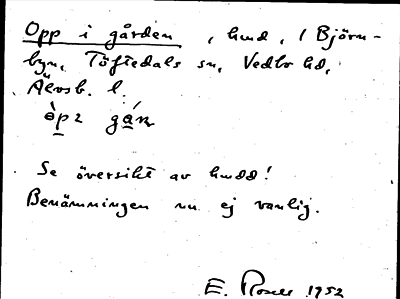 Opp i gården, hmd, i Björn-
byn, Töftedals sn, Vedbo hd,
Älvsb. l.
Se översikt av hmdd!
Benämningen nu ej vanlig.
E. Rosell 1952